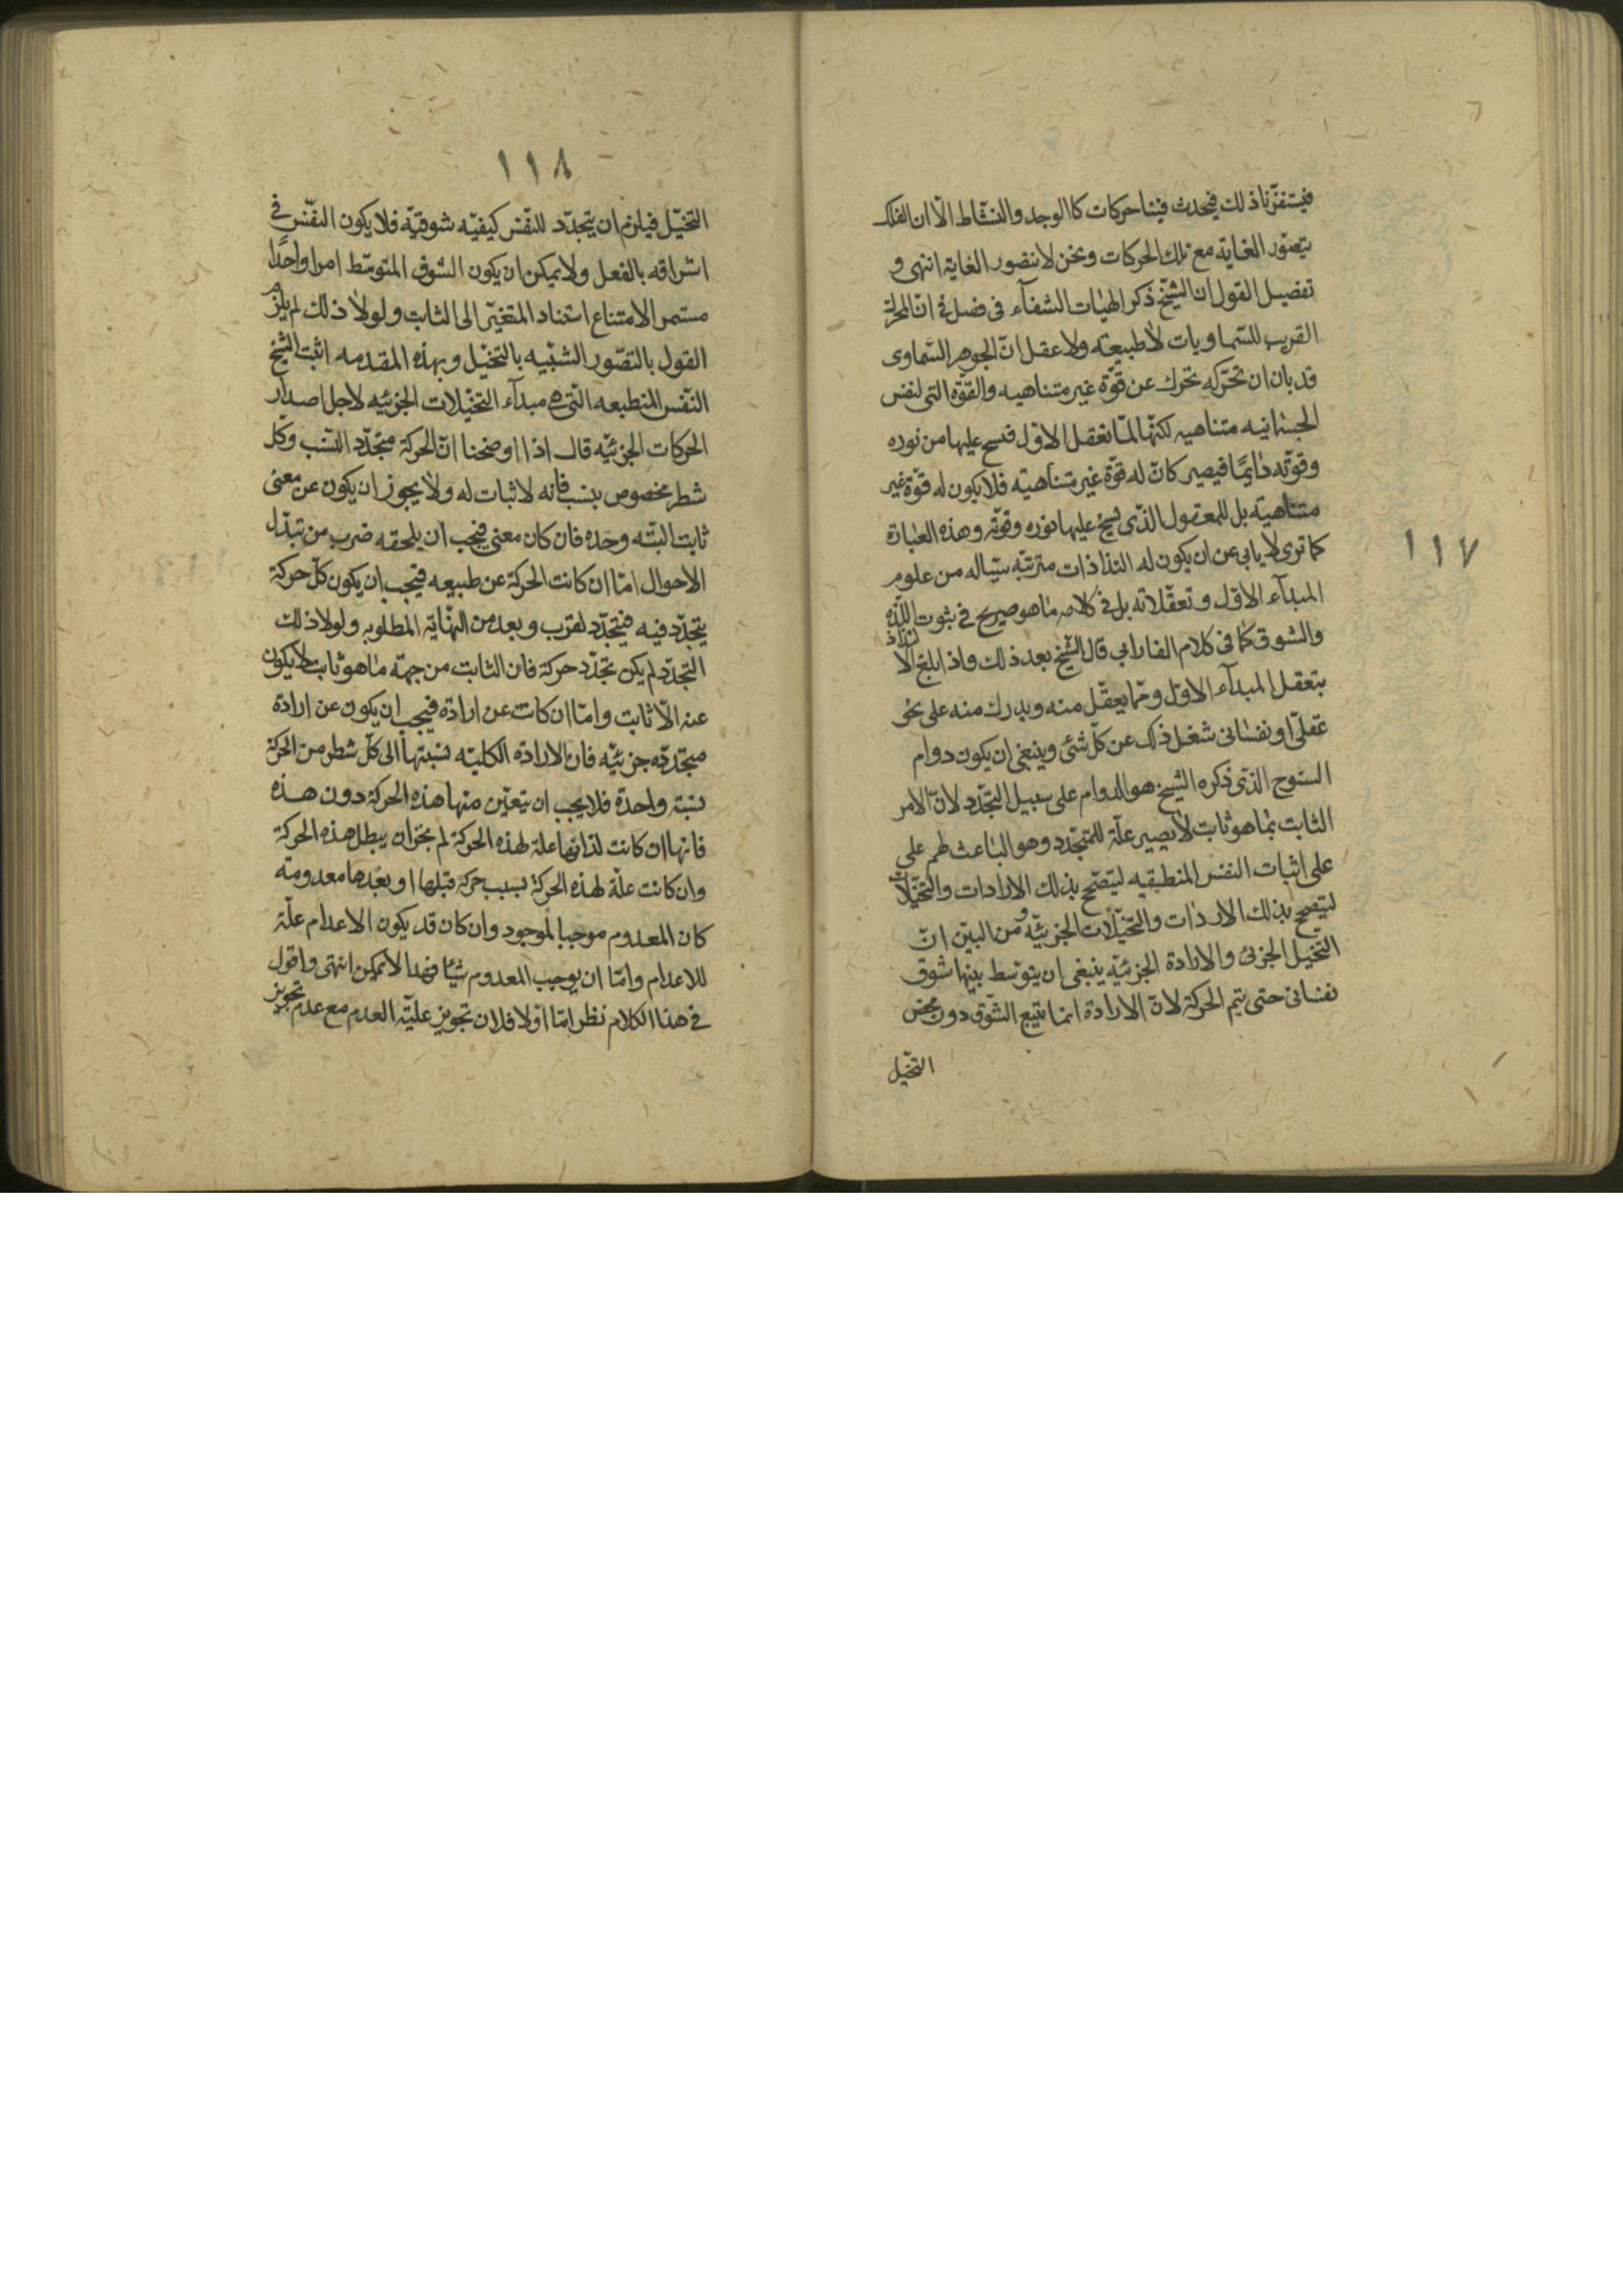 ١١٧
فيستفزّنا ذلك فيحدث فينا حركات كالوجد والنشاط الّا ان الفلك
يتصوّر الغاية مع تلك الحركات ونحن لا نتصور الغاية انتهى و
تفصيل القول ان الشيخ ذكر الهيات الشفآء فى فصل فى انّ المحرك
القريب للسّماويات لا طبيعته ولا عقل انّ الجوهر السّماوى
قد بان ان تحرّكه تحرك عن قوّة غير متناهيه والقوّة التى لنفس
الجسمانيه متناهيه لكنّها لمّا تعقل الاوّل فسح عليها من نوره
وقوّته دايمًا فيصير كانّ له قوّة غير متناهيّة فلا يكون له قوّة غير
متناهيّة بل للمعقول الذّى يسيح عليها نوره وقوّته وهذه العبارة
كما ترى لا يابى عن ان يكون له التذاذات مترتبّه سيّاله من علوم
المبدآء الاوّل وتعقّلاته بل فى كلامه ما هو صريح فى ثبوت اللّذه
والشوق كما فى كلام الفارابى قال الشّيخ بعد ذلك واذا بلغ الالتذاذ
بتعقل المبدآء الاوّل وممّا يعقّل منه ويدرك منه على نحو
عقلّى او نفسانى شغل ذلك عن كلّ شئ وينبغى ان يكون دوام
السنوح الذّى ذكره الشيخ هو الدوام على سبيل التّجدّد لانّ الامر
الثابت بما هو ثابت لا يصير علّة للمتجدّد وهو الباعث لهم على
على اثبات النفس المنطبقيه ليتصّحح بذلك الارادات والتّخيّلات
ليتصحح بذلك الاردات والتّخيّلات الجزئيّه و من البيّن انّ
التّخيّل الجزئ والارادة الجزئيّه ينبغى ان يتوّسط بينها شوق
نفسانى حتى يتم الحركة لانّ الارادة انما تتبع الشّوق دون محض
التخيّل
١١٨
التخيّل فيلزم ان يتجدّد للنّفس كيفيّه شوقيّه فلا يكون النفّس فى
اشراقه بالفعل ولا يمكن ان يكون الشوق المتوسّط امرا واحدًا
مستمر الامتناع استناد المتغيّر الى الثابت ولولا ذلك لم يلزم
القول بالتصّور الشبّيه بالتخيّل وبهذه المقدمه اثبت الشيخ
النّفس المنطبعه التّى هى مبدآء التخيّلات الجزئيه لاجل اصدار
الحركات الجزئيّه قال اذا اوضحنا انّ الحركة متجدّد النّسب وكل
شطر مخصوص بنسب فانه لا ثبات له ولا يجوز ان يكون عن معنى
ثابت البتّه وحده فان كان معنى فيجب ان يلحقه ضرب من تبدّل
الاحوال امّا ان كانت الحركة عن طبيعه فيجب ان يكون كلّ حركة
يتجدّد فيه فيتجدّد لقرب وبعد من النهّاية المطلوبه ولولا ذلك
التجدّد لم يكن تجدّد حركة فان الثابت من جهة ما هو ثابت لا يكون
عنه الّا ثابت وامّا ان كانت عن ارادة فيجب ان يكون عن ارادة
متجدّده جزئيّه فانّ الارادة الكليّه نسبتها الى كلّ شطر من الحركة
نسبة واحدة فلا يجب ان يتعيّن منها هذه الحركة دون هذه
فانها ان كانت لذاتها علة لهذه الحركة لم يجزان يبطل هذه الحركة
وان كانت علّة لهذه الحركة بسبب حركة قبلها او بعدها معدومة
كان المعدوم موجبا لموجود وان كان قد يكون الاعدام علّة
للاعدام وامّا ان يوجب المعدوم شيئا فهذا لا يمكن انتهى واقول
فى هذا الكلام نظر امّا اوّلا فلان تجويز عليّه العدم مع عدم تجويز